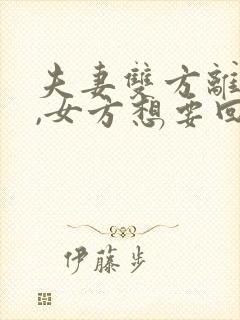 夫妻雙方離
,女方想要回
伊藤步